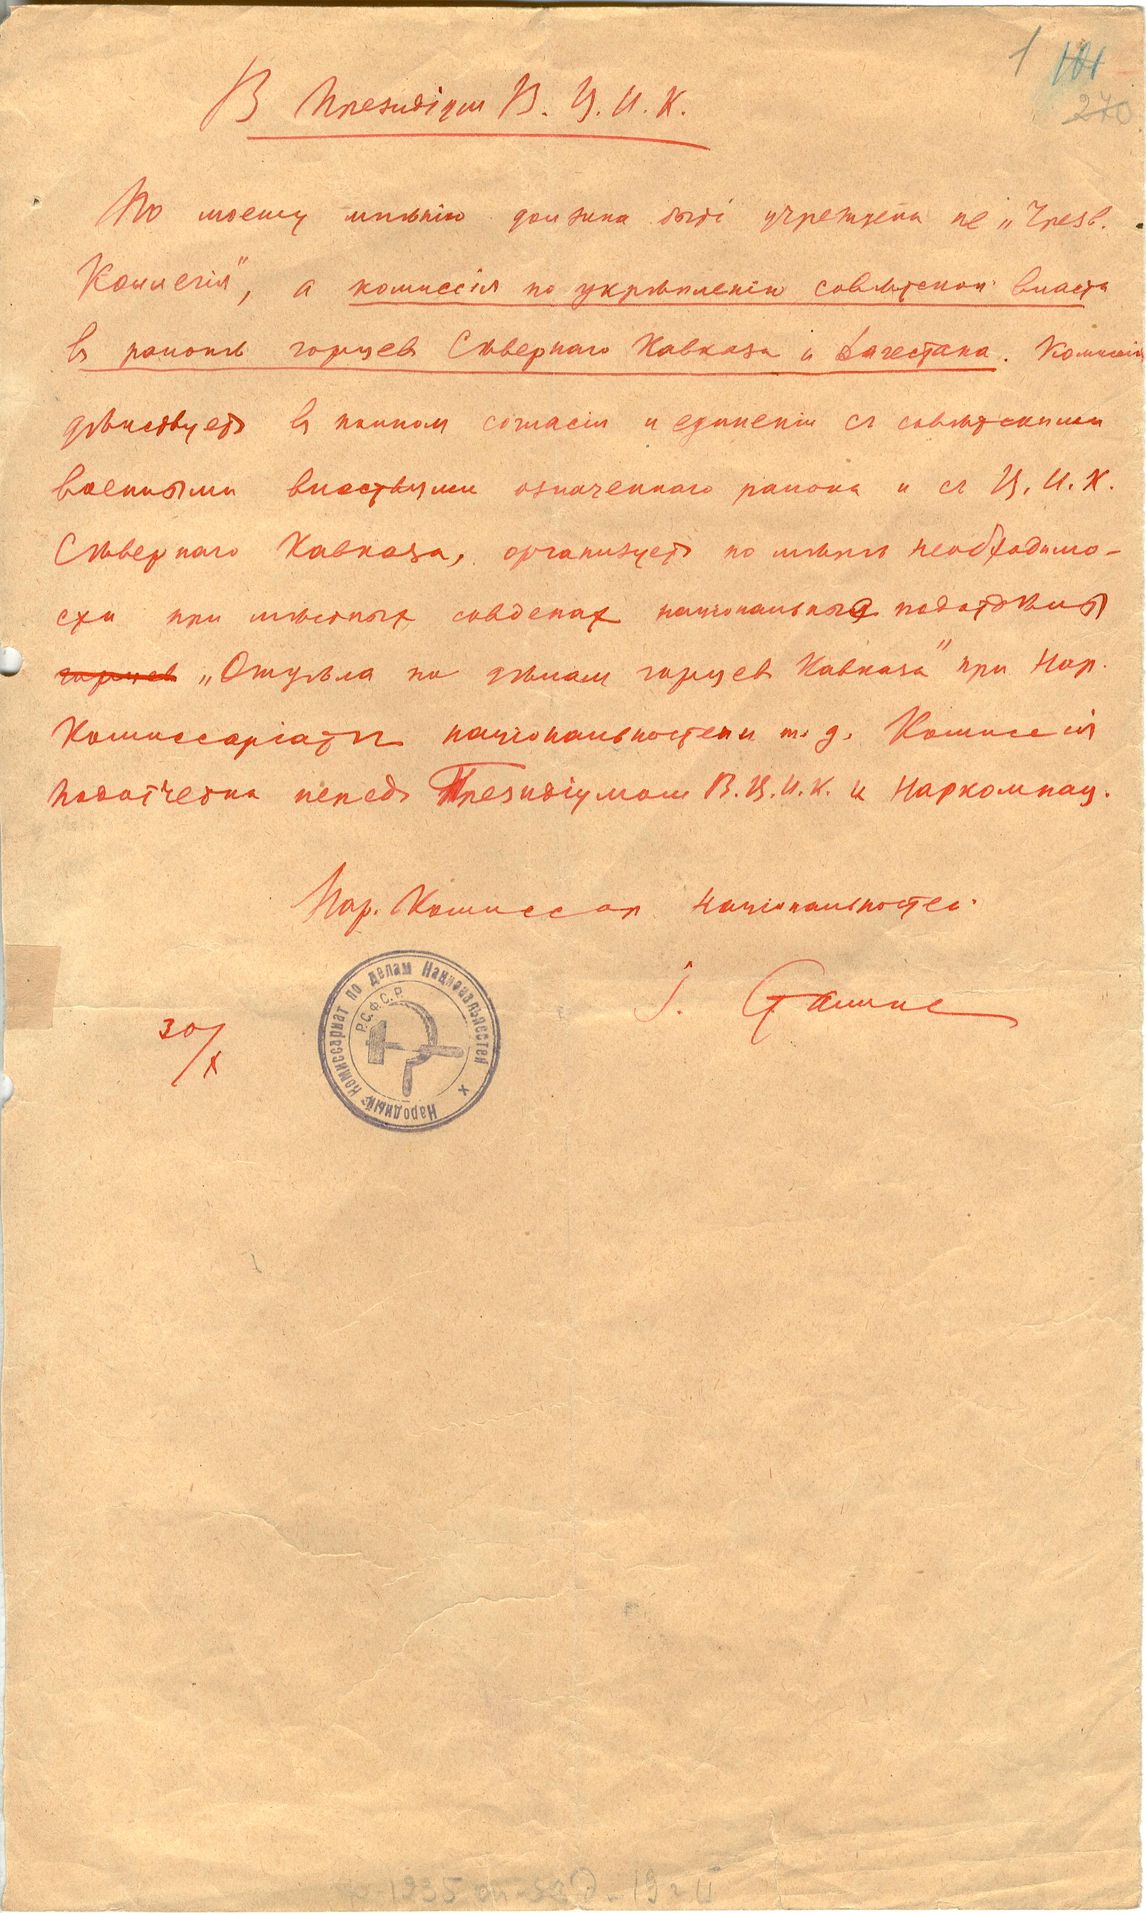 1 101
270
В Президіум В. Ц. И. К.
По моему мнѣнію должна быть учреждена не „Чрезв.
Коллегія", а комиссія по укрѣпленію совѣтской власти
въ районѣ горцев Сѣвернаго Кавказа и Дагестана. Комиссія
дѣйствуетъ въ полном согласіи и единеніи съ совѣтскими
военными властями означеннаго района и съ Ц. И. К.
Сѣвернаго Кавказа, организуетъ по мѣрѣ необходимо-
сти при мѣстных совдепах національные подотдѣлы
горцев „Отдѣла по дѣлам горцев Кавказа" при Нар.
Комиссаріатѣ національностей и т. д. Комиссія
подотчетна передъ Президіумом В.Ц.И.К. и Наркомнац.
Нар. Комиссар національностей
І. Сталин
30/X
Народный Комиссариат по делам Национальностей
Р.С.Ф.С.Р.